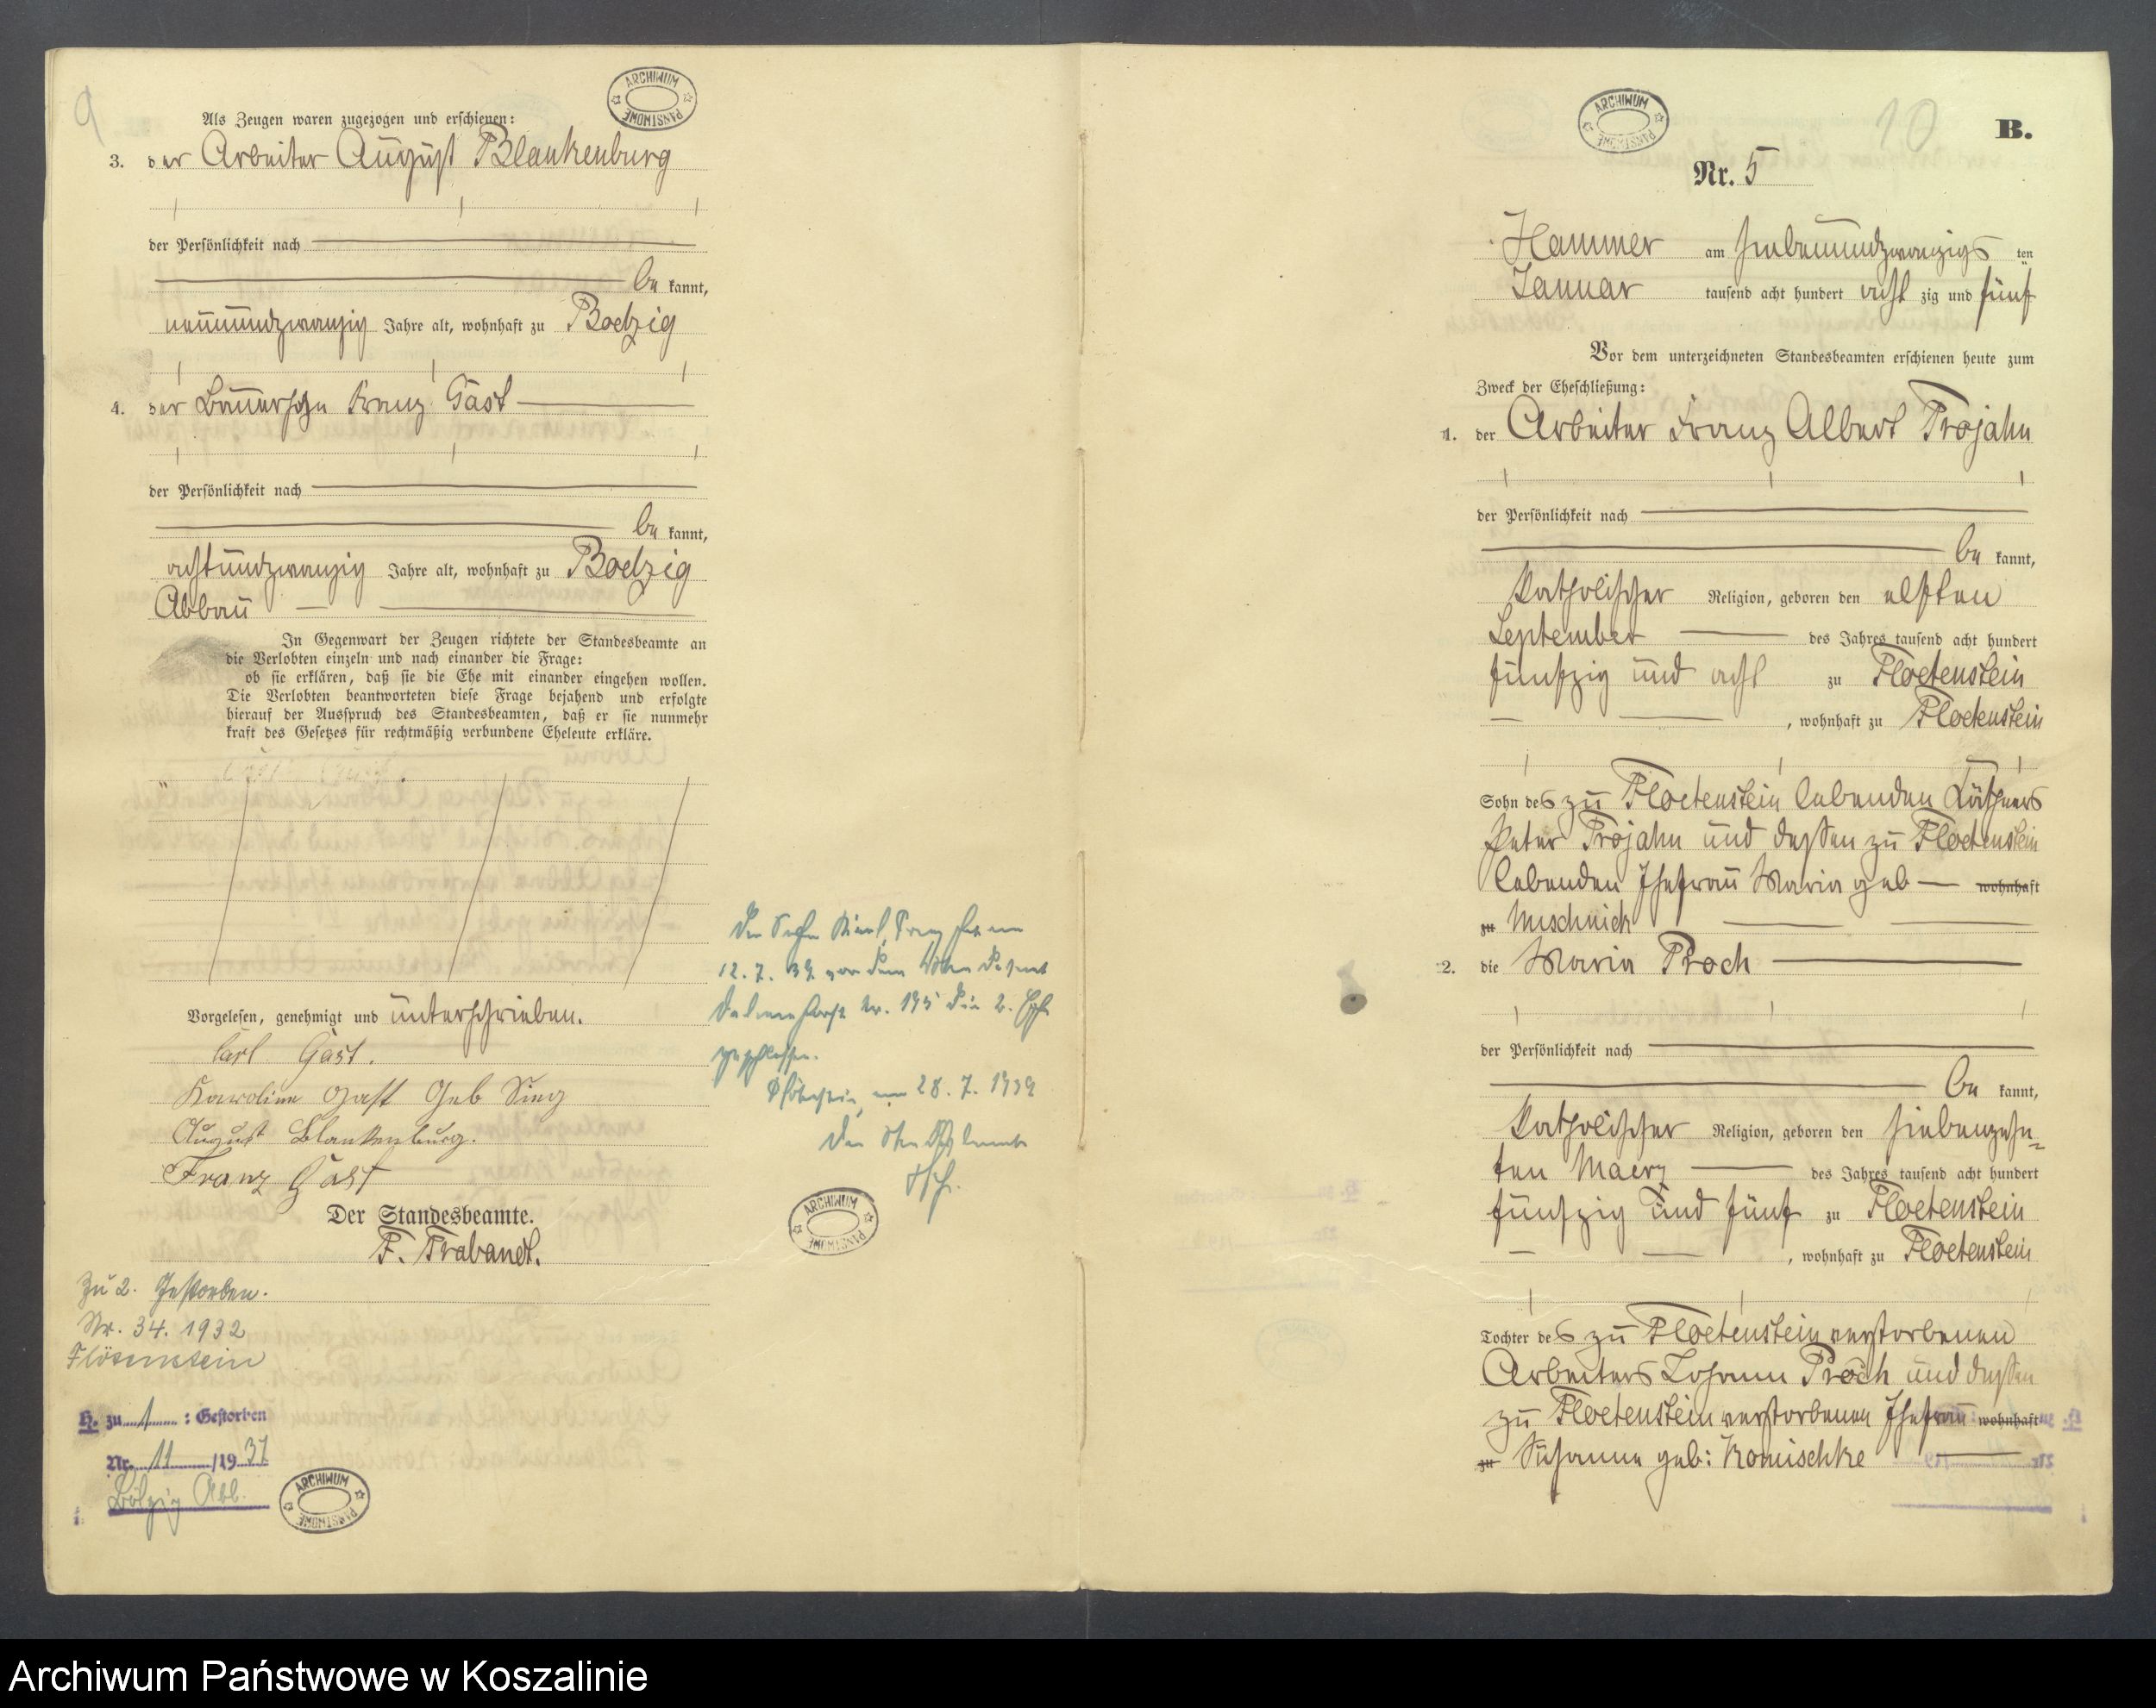 9
ARCHIWUM PAŃSTWOWE
Als Zeugen waren zugezogen und erschienen:
3. der Arbeiter August Blankenburg
der Persönlichkeit nach
be kannt,
neunundzwanzig Jahre alt, wohnhaft zu Boelzig
4. der Bauersohn Franz Gast
der Persönlichkeit nach
be kannt,
achtundzwanzig Jahre alt, wohnhaft zu Boelzig
Abbau
In Gegenwart der Zeugen richtete der Standesbeamte an
die Verlobten einzeln und nach einander die Frage:
ob sie erklären, daß sie die Ehe mit einander eingehen wollen.
Die Verlobten beantworteten diese Frage bejahend und erfolgte
hierauf der Ausspruch des Standesbeamten, daß er sie nunmehr
kraft des Gesetzes für rechtmäßig verbundene Eheleute erkläre.
Vorgelesen, genehmigt und unterschrieben.
Carl Gast.
Karoline Gast Geb
August Blankenburg.
Franz Gast
Der Standesbeamte.
F. Trabandt.
Zu 2. Gestorben.
Nr. 34. 1932
H. zu 1 : Gestorben
Nr. 11 /19 37
Bölzig Abb.
ARCHIWUM PAŃSTWOWE
Der Sohn
12. 7. 39 vor dem Standesamt
Nr. 195 die 2. Ehe
geschlossen.
am 28. 7. 1939
Der Standesbeamte
ARCHIWUM PAŃSTWOWE
ARCHIWUM PAŃSTWOWE
10
B.
Nr. 5
Hammer am siebenundzwanzigs ten
Januar tausend acht hundert acht zig und fünf
Vor dem unterzeichneten Standesbeamten erschienen heute zum
Zweck der Eheschließung:
1. der Arbeiter Franz Albert Trojahn
der Persönlichkeit nach
be kannt,
katholischer Religion, geboren den elften
September des Jahres tausend acht hundert
fünfzig und acht zu Floetenstein
, wohnhaft zu Floetenstein
Sohn des zu Floetenstein lebenden Käthners
Peter Trojahn und dessen zu Floetenstein
lebenden Ehefrau Maria geb wohnhaft
zu Muschnick
2. die Maria Proch
der Persönlichkeit nach
be kannt,
katholischer Religion, geboren den siebenzehn=
ten Maerz des Jahres tausend acht hundert
fünfzig und fünf zu Floetenstein
, wohnhaft zu Floetenstein
Tochter des zu Floetenstein verstorbenen
Arbeiters Johann Proch und dessen
zu Floetenstein verstorbenen Ehefrau wohnhaft
zu Susanna geb: Komischke
Archiwum Państwowe w Koszalinie